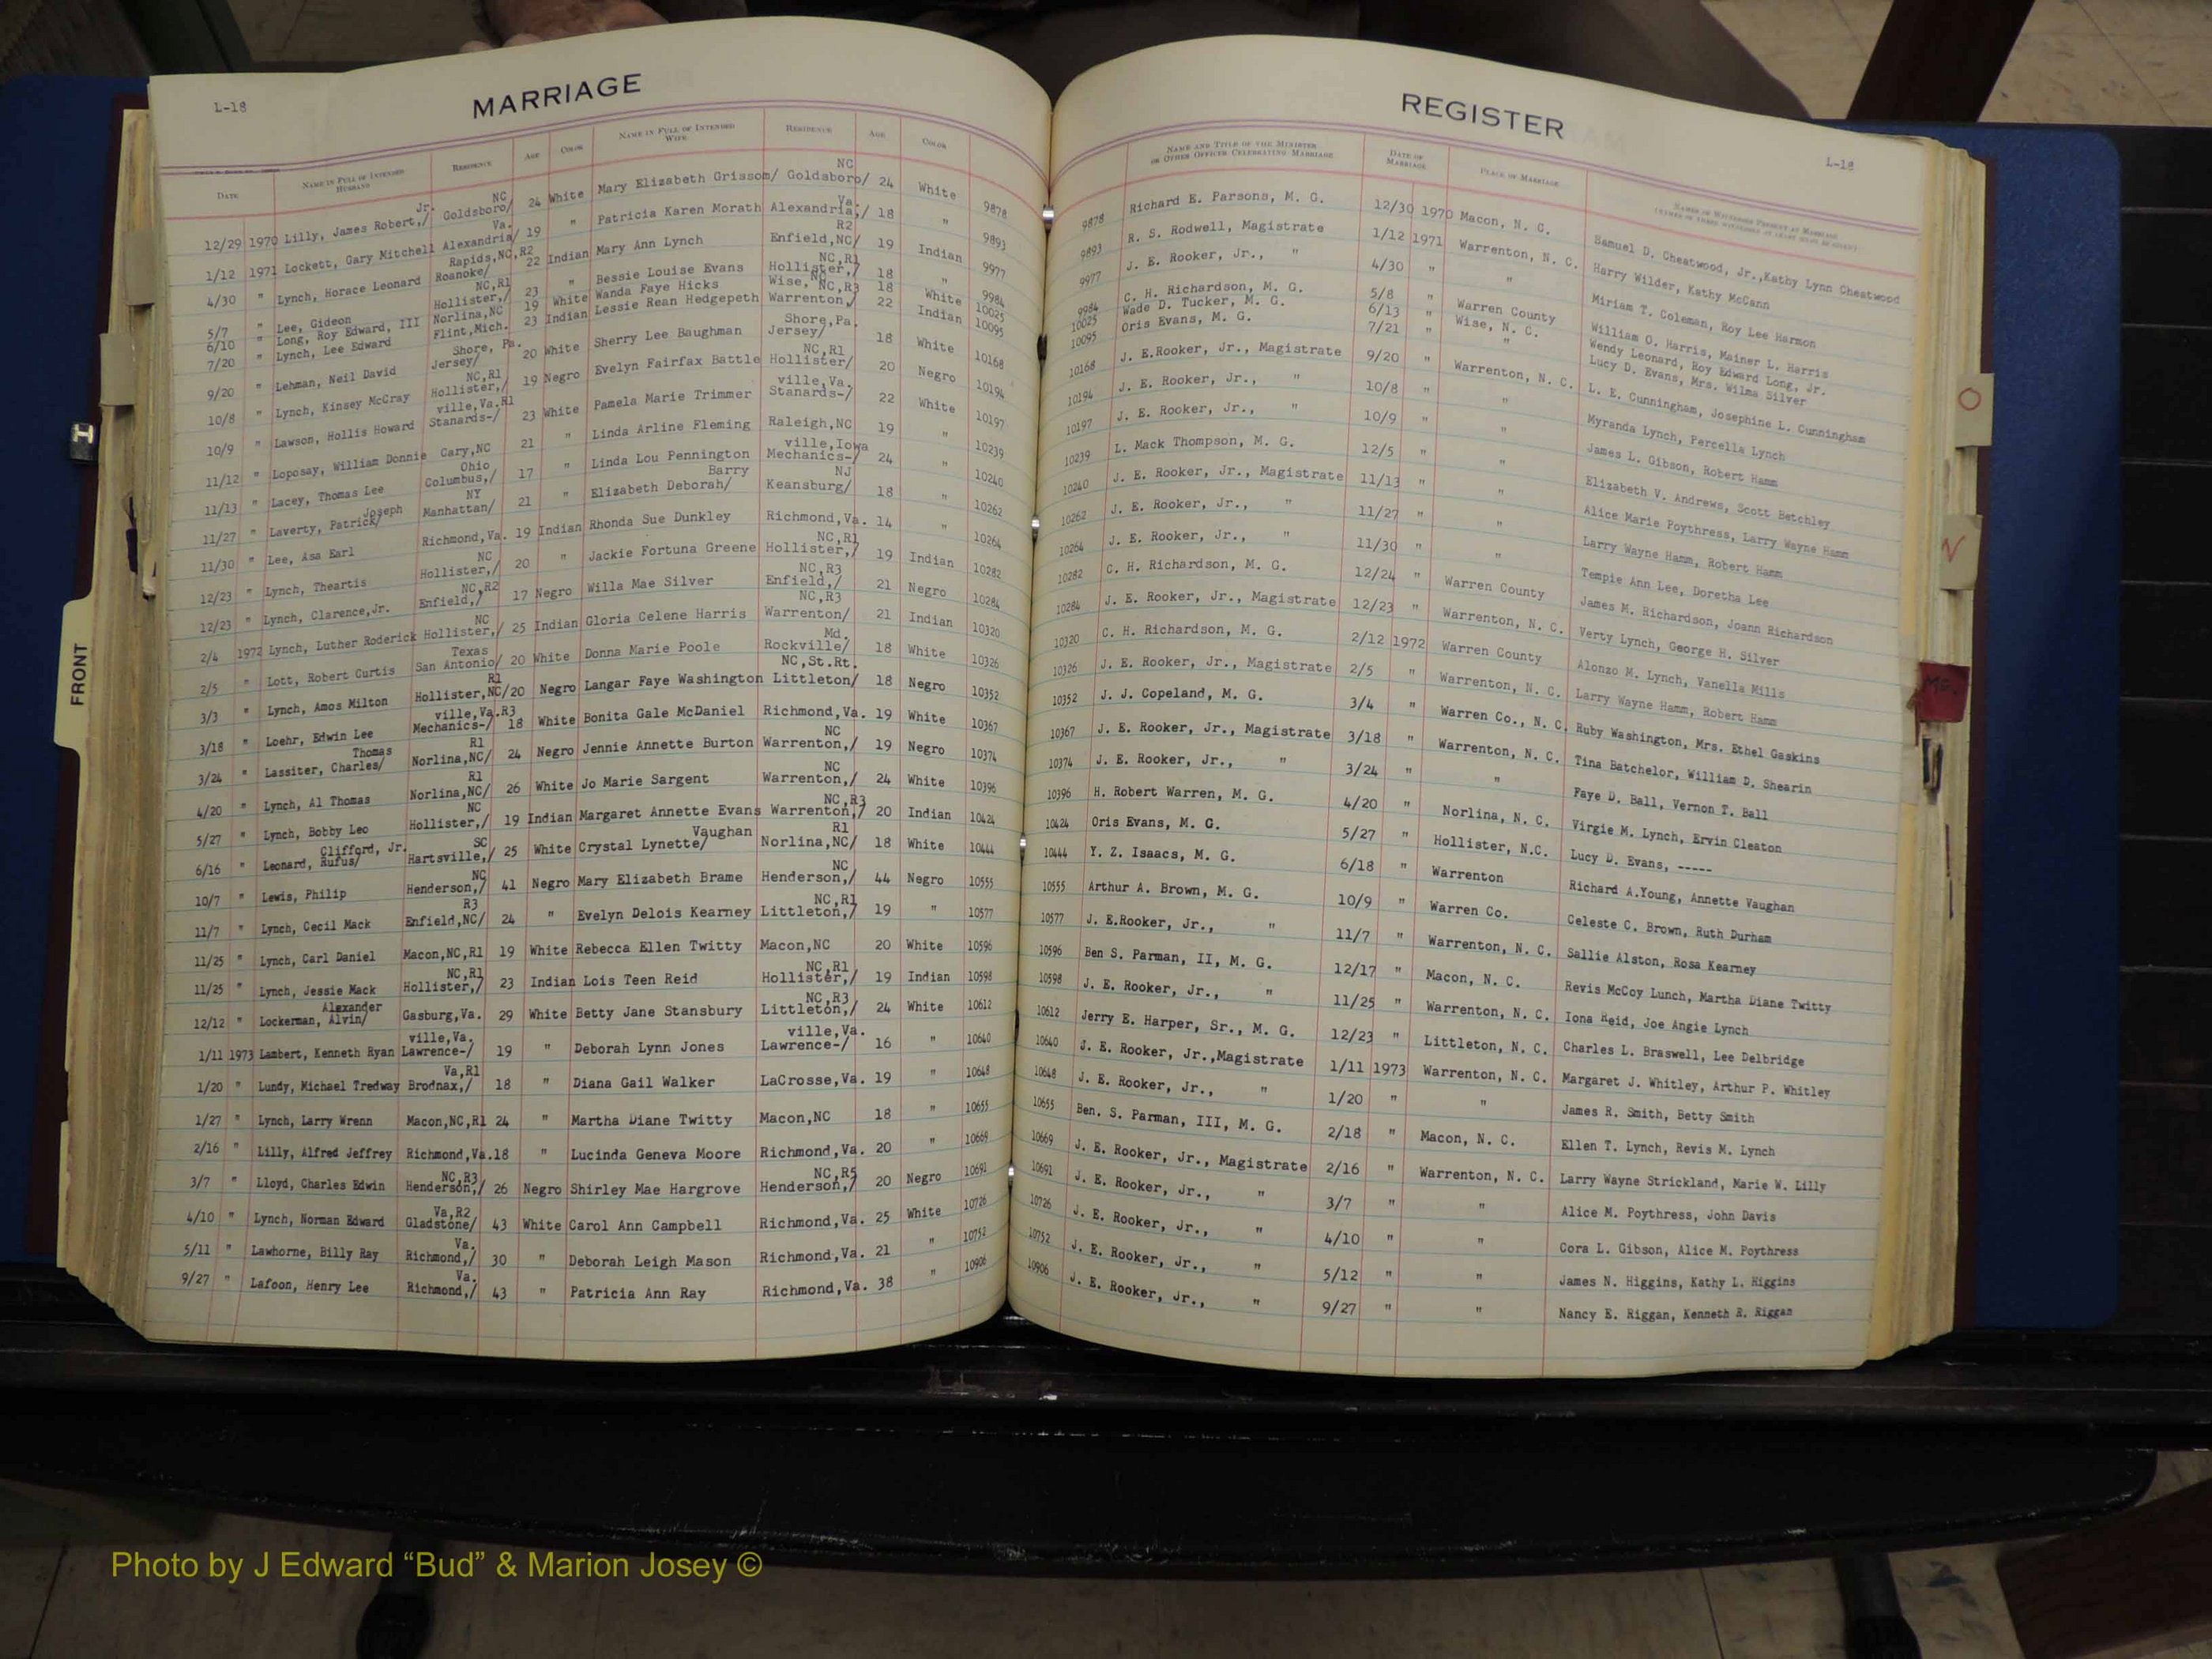 L-18
MARRIAGE
DATE NAME IN FULL OF INTENDED HUSBAND RESIDENCE AGE COLOR NAME IN FULL OF INTENDED WIFE RESIDENCE AGE COLOR
12/29 1970 Lilly, James Robert,/ Jr. Goldsboro/ NC 24 White Mary Elizabeth Grissom/ Goldsboro/ NC 24 White 9878
1/12 1971 Lockett, Gary Mitchell Alexandria/ Va. 19 " Patricia Karen Morath Alexandria,/ Va. 18 " 9893
4/30 " Lynch, Horace Leonard Roanoke/ Rapids,NC,R2 22 Indian Mary Ann Lynch Enfield,NC/ R2 19 Indian 9977
5/7 " Lee, Gideon Hollister,/ NC,R1 23 " Bessie Louise Evans Hollister,/ NC,R1 18 9984
6/10 " Long, Roy Edward, III Norlina,NC 19 White Wanda Faye Hicks Wise, NC 18 White 10025
7/20 " Lynch, Lee Edward Flint,Mich. 23 Indian Lessie Rean Hedgepeth Warrenton,/ NC,R3 22 Indian 10095
9/20 " Lehman, Neil David Jersey/ Shore, Pa. 20 White Sherry Lee Baughman Jersey/ Shore,Pa. 18 White 10168
10/8 " Lynch, Kinsey McCray Hollister,/ NC,R1 19 Negro Evelyn Fairfax Battle Hollister/ NC,R1 20 Negro 10194
10/9 " Lawson, Hollis Howard Stanards-/ ville,Va.R1 23 White Pamela Marie Trimmer Stanards-/ ville,Va. 22 White 10197
11/12 " Loposay, William Donnie Cary,NC 21 " Linda Arline Fleming Raleigh,NC 19 " 10239
11/13 " Lacey, Thomas Lee Columbus,/ Ohio 17 " Linda Lou Pennington Mechanics-/ ville,Iowa 24 " 10240
11/27 " Laverty, Patrick/ Joseph Manhattan/ NY 21 " Elizabeth Deborah/ Barry Keansburg/ NJ 18 " 10262
11/30 " Lee, Asa Earl Richmond,Va. 19 Indian Rhonda Sue Dunkley Richmond,Va. 14 " 10264
12/23 " Lynch, Theartis Hollister,/ NC 20 " Jackie Fortuna Greene Hollister,/ NC,R1 19 Indian 10282
12/23 " Lynch, Clarence,Jr. Enfield,/ NC,R2 17 Negro Willa Mae Silver Enfield,/ NC,R3 21 Negro 10284
2/4 1972 Lynch, Luther Roderick Hollister,/ NC 25 Indian Gloria Celene Harris Warrenton/ NC,R3 21 Indian 10320
2/5 " Lott, Robert Curtis San Antonio/ Texas 20 White Donna Marie Poole Rockville/ Md. 18 White 10326
3/3 " Lynch, Amos Milton Hollister,NC/ R1 20 Negro Langar Faye Washington Littleton/ NC,St.Rt. 18 Negro 10352
3/18 " Loehr, Edwin Lee Mechanics-/ ville,Va.R3 18 White Bonita Gale McDaniel Richmond,Va. 19 White 10367
3/24 " Lassiter, Charles/ Thomas Norlina,NC/ R1 24 Negro Jennie Annette Burton Warrenton,/ NC 19 Negro 10374
4/20 " Lynch, Al Thomas Norlina,NC/ R1 26 White Jo Marie Sargent Warrenton,/ NC 24 White 10396
5/27 " Lynch, Bobby Leo Hollister,/ NC 19 Indian Margaret Annette Evans Warrenton,/ NC,R3 20 Indian 10424
6/16 " Leonard, Rufus/ Clifford, Jr. Hartsville,/ SC 25 White Crystal Lynette/ Vaughan Norlina,NC/ R1 18 White 10444
10/7 " Lewis, Philip Henderson,/ NC 41 Negro Mary Elizabeth Brame Henderson,/ NC 44 Negro 10555
11/7 " Lynch, Cecil Mack Enfield,NC/ R3 24 " Evelyn Delois Kearney Littleton,/ NC,R1 19 " 10577
11/25 " Lynch, Carl Daniel Macon,NC,R1 19 White Rebecca Ellen Twitty Macon,NC 20 White 10596
11/25 " Lynch, Jessie Mack Hollister,/ NC,R1 23 Indian Lois Teen Reid Hollister,/ NC,R1 19 Indian 10598
12/12 " Lockerman, Alvin/ Alexander Gasburg,Va. 29 White Betty Jane Stansbury Littleton,/ NC,R3 24 White 10612
1/11 1973 Lambert, Kenneth Ryan Lawrence-/ ville,Va. 19 " Deborah Lynn Jones Lawrence-/ ville,Va. 16 " 10640
1/20 " Lundy, Michael Tredway Brodnax,/ Va,R1 18 " Diana Gail Walker LaCrosse,Va. 19 " 10648
1/27 " Lynch, Larry Wrenn Macon,NC,R1 24 " Martha Diane Twitty Macon,NC 18 " 10655
2/16 " Lilly, Alfred Jeffrey Richmond,Va. 18 " Lucinda Geneva Moore Richmond,Va. 20 " 10669
3/7 " Lloyd, Charles Edwin Henderson,/ NC,R3 26 Negro Shirley Mae Hargrove Henderson,/ NC,R5 20 Negro 10691
4/10 " Lynch, Norman Edward Gladstone/ Va,R2 43 White Carol Ann Campbell Richmond,Va. 25 White 10726
5/11 " Lawhorne, Billy Ray Richmond,/ Va. 30 " Deborah Leigh Mason Richmond,Va. 21 " 10752
9/27 " Lafoon, Henry Lee Richmond,/ Va. 43 " Patricia Ann Ray Richmond,Va. 38 " 10906
REGISTER
L-18
NAME AND TITLE OF THE MINISTER OR OTHER OFFICER CELEBRATING MARRIAGE DATE OF MARRIAGE PLACE OF MARRIAGE NAMES OF WITNESSES PRESENT AT MARRIAGE
9878 Richard E. Parsons, M. G. 12/30 1970 Macon, N. C. Samuel D. Cheatwood, Jr.,Kathy Lynn Cheatwood
9893 R. S. Rodwell, Magistrate 1/12 1971 Warrenton, N. C. Harry Wilder, Kathy McCann
9977 J. E. Rooker, Jr., " 4/30 " " Miriam T. Coleman, Roy Lee Harmon
9984 C. H. Richardson, M. G. 5/8 " Warren County William O. Harris, Mainer L. Harris
10025 Wade D. Tucker, M. G. 6/13 " Wise, N. C. Wendy Leonard, Roy Edward Long, Jr.
10095 Oris Evans, M. G. 7/21 " " Lucy D. Evans, Mrs. Wilma Silver
10168 J. E.Rooker, Jr., Magistrate 9/20 " Warrenton, N. C. L. E. Cunningham, Josephine L. Cunningham
10194 J. E. Rooker, Jr., " 10/8 " " Myranda Lynch, Percella Lynch
10197 J. E. Rooker, Jr., " 10/9 " " James L. Gibson, Robert Hamm
10239 L. Mack Thompson, M. G. 12/5 " " Elizabeth V. Andrews, Scott Betchley
10240 J. E. Rooker, Jr., Magistrate 11/13 " " Alice Marie Poythress, Larry Wayne Hamm
10262 J. E. Rooker, Jr., " 11/27 " " Larry Wayne Hamm, Robert Hamm
10264 J. E. Rooker, Jr., " 11/30 " " Tempie Ann Lee, Doretha Lee
10282 C. H. Richardson, M. G. 12/24 " Warren County James M. Richardson, Joann Richardson
10284 J. E. Rooker, Jr., Magistrate 12/23 " Warrenton, N. C. Verty Lynch, George H. Silver
10320 C. H. Richardson, M. G. 2/12 1972 Warren County Alonzo M. Lynch, Vanella Mills
10326 J. E. Rooker, Jr., Magistrate 2/5 " Warrenton, N. C. Larry Wayne Hamm, Robert Hamm
10352 J. J. Copeland, M. G. 3/4 " Warren Co., N. C. Ruby Washington, Mrs. Ethel Gaskins
10367 J. E. Rooker, Jr., Magistrate 3/18 " Warrenton, N. C. Tina Batchelor, William D. Shearin
10374 J. E. Rooker, Jr., " 3/24 " " Faye D. Ball, Vernon T. Ball
10396 H. Robert Warren, M. G. 4/20 " Norlina, N. C. Virgie M. Lynch, Ervin Cleaton
10424 Oris Evans, M. G. 5/27 " Hollister, N.C. Lucy D. Evans, -----
10444 Y. Z. Isaacs, M. G. 6/18 " Warrenton Richard A.Young, Annette Vaughan
10555 Arthur A. Brown, M. G. 10/9 " Warren Co. Celeste C. Brown, Ruth Durham
10577 J. E.Rooker, Jr., " 11/7 " Warrenton, N. C. Sallie Alston, Rosa Kearney
10596 Ben S. Parman, II, M. G. 12/17 " Macon, N. C. Revis McCoy Lunch, Martha Diane Twitty
10598 J. E. Rooker, Jr., " 11/25 " Warrenton, N. C. Iona Reid, Joe Angie Lynch
10612 Jerry E. Harper, Sr., M. G. 12/23 " Littleton, N. C. Charles L. Braswell, Lee Delbridge
10640 J. E. Rooker, Jr.,Magistrate 1/11 1973 Warrenton, N. C. Margaret J. Whitley, Arthur P. Whitley
10648 J. E. Rooker, Jr., " 1/20 " " James R. Smith, Betty Smith
10655 Ben. S. Parman, III, M. G. 2/18 " Macon, N. C. Ellen T. Lynch, Revis M. Lynch
10669 J. E. Rooker, Jr., Magistrate 2/16 " Warrenton, N. C. Larry Wayne Strickland, Marie W. Lilly
10691 J. E. Rooker, Jr., " 3/7 " " Alice M. Poythress, John Davis
10726 J. E. Rooker, Jr., " 4/10 " " Cora L. Gibson, Alice M. Poythress
10752 J. E. Rooker, Jr., " 5/12 " " James N. Higgins, Kathy L. Higgins
10906 J. E. Rooker, Jr., " 9/27 " " Nancy E. Riggan, Kenneth R. Riggan
FRONT
O
N
Photo by J Edward “Bud” & Marion Josey ©